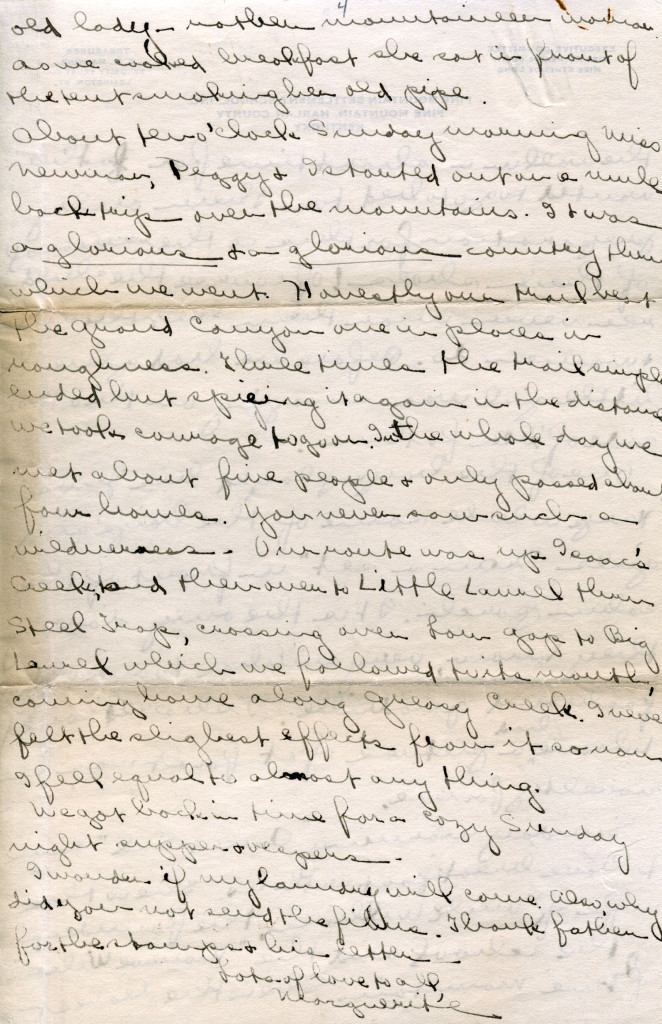 4
old lady - rather mountaineer woman
as we cooked breakfast she sat in front of
the tent smoking her old pipe.
About ten o'clock Sunday morning Miss
Newman, Peggy & I started out on a mule
back trip over the mountains. It was
a glorious & a glorious country thru
which we went. Honestly our trail beat
the grand Canyon one in places in
roughness. Three times the trail simply
ended but spieing it again in the distance
we took courage to go on. In the whole day we
met about five people & only passed about
four homes. You never saw such a
wilderness. Our route was up Isaac's
Creek, and then over to Little Laurel thru
Steel Trap, crossing over Low gap to Big
Laurel which we followed to its mouth
coming home along Greasy Creek. I never
felt the slighest effects from it so now
I feel equal to almost any thing.
We got back in time for a cozy Sunday
night supper & vespers.
I wonder if my laundry will come. Also why
did you not send the films. Thank father
for the stamps & his letter
Lots of love to all
Marguerite